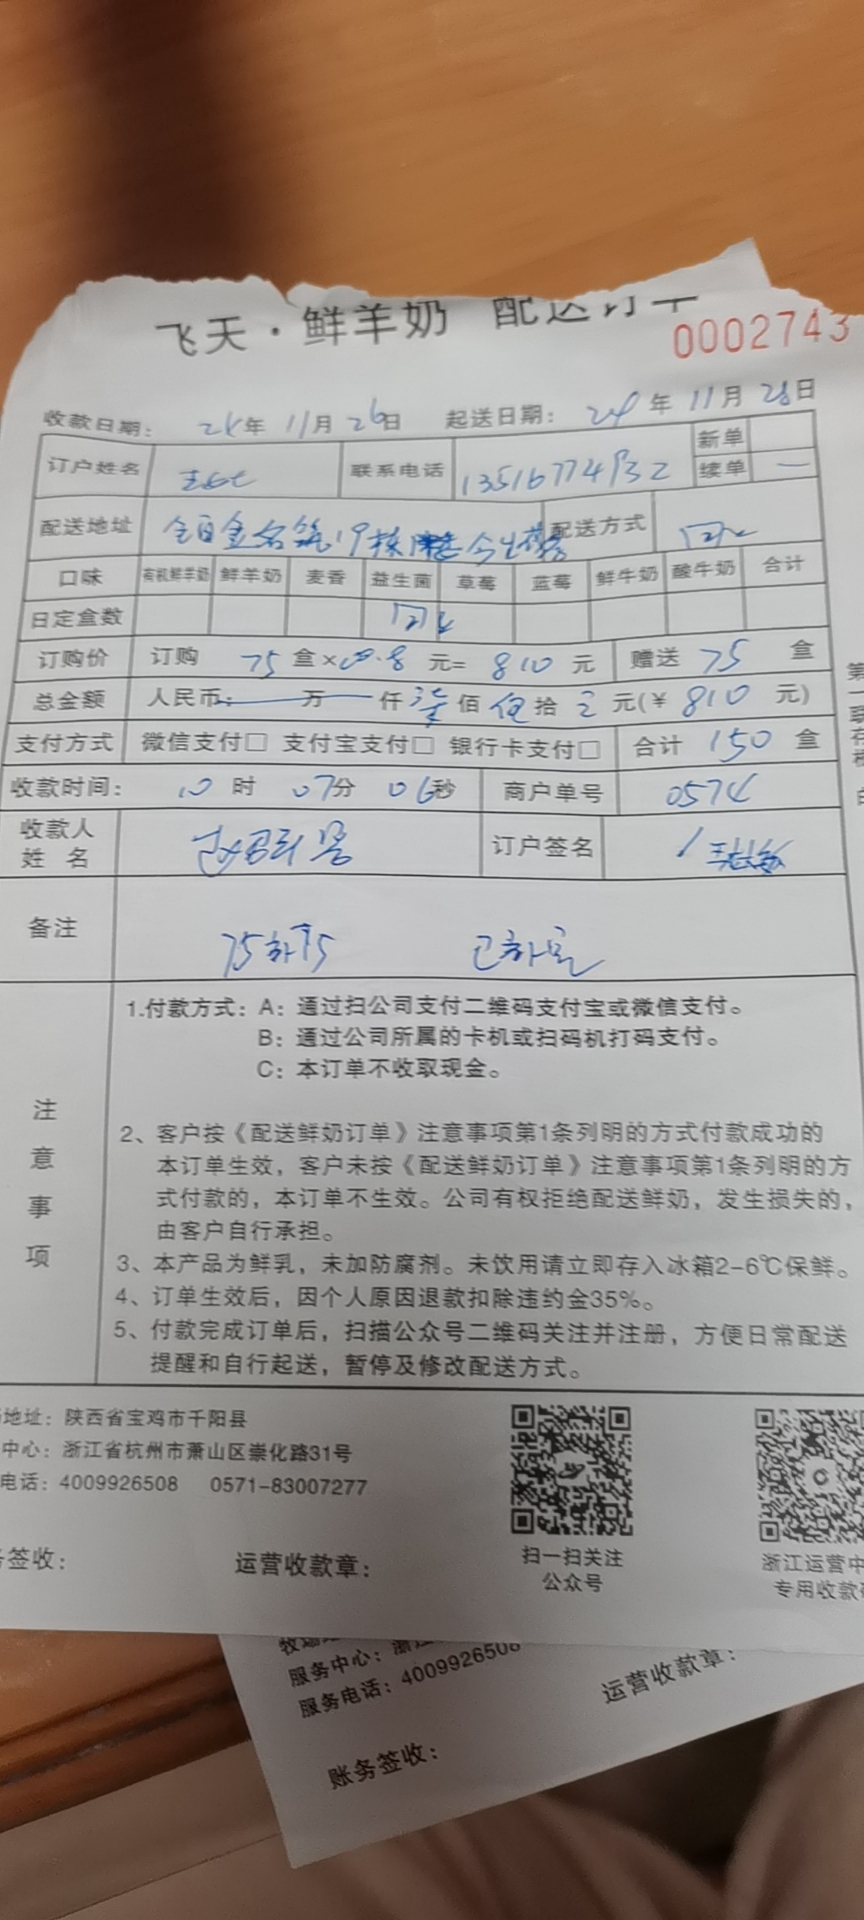 飞天·鲜羊奶 配送订单
0002743
收款日期: 24年 11月 26日 起送日期: 24年 11月 28日
订户姓名 联系电话 新单
续单 —
配送地址 19栋 配送方式
口味 有机鲜羊奶 鲜羊奶 麦香 益生菌 草莓 蓝莓 鲜牛奶 酸牛奶 合计
日定盒数
订购价 订购 75 盒× 元= 810 元 赠送 75 盒
总金额 人民币: 万 仟 佰 拾 元(¥ 810 元)
支付方式 微信支付□ 支付宝支付□ 银行卡支付□ 合计 150 盒
收款时间: 10 时 07分 06秒 商户单号 0574
收款人
姓 名 订户签名
备注 75 75
注意事项
1.付款方式: A: 通过扫公司支付二维码支付宝或微信支付。
B: 通过公司所属的卡机或扫码机打码支付。
C: 本订单不收取现金。
2、客户按《配送鲜奶订单》注意事项第1条列明的方式付款成功的
本订单生效，客户未按《配送鲜奶订单》注意事项第1条列明的方
式付款的，本订单不生效。公司有权拒绝配送鲜奶，发生损失的，
由客户自行承担。
3、本产品为鲜乳，未加防腐剂。未饮用请立即存入冰箱2-6℃保鲜。
4、订单生效后，因个人原因退款扣除违约金35%。
5、付款完成订单后，扫描公众号二维码关注并注册，方便日常配送
提醒和自行起送，暂停及修改配送方式。
地址: 陕西省宝鸡市千阳县
中心: 浙江省杭州市萧山区崇化路31号
电话: 4009926508 0571-83007277
签收: 运营收款章:
扫一扫关注
公众号
浙江运营中
专用收款
服务中心:
服务电话: 4009926508
运营收款章:
账务签收: